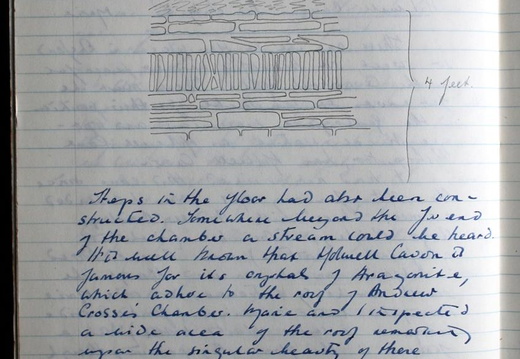 4 feet.
Steps in the floor had also been con-
structed. Somewhere beyond the far end
of the chamber a stream could be heard.
It is well known that Holwell Cavern is
famous for its crystals of Aragonite,
which adhere to the roof of Andrew
Crosse's Chamber. Marie and I inspected
a wide area of the roof remarking
upon the singular beauty of these